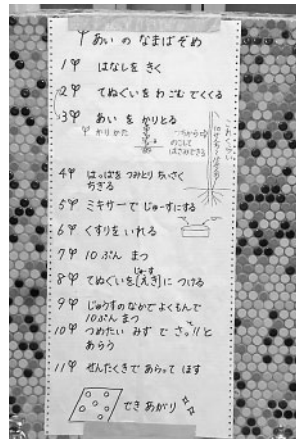 あい の なまばぞめ
1 はなしを きく
2 てぬぐいを わごむ でくくる
3 あい を かりとる
かりかた
つちから
のこして
はさみできる
4 はっぱを つみとり ちいさく
ちぎる
5 ミキサーで じゅーすにする
6 くすりを いれる
7 10ぷん まつ
8 てぬぐいを(えき)に つける
じゅーす
9 じゅうすのなかで よくもんで
10ぷん まつ
10 つめたい みず で さっ!! と
あらう
11 せんたくきで あらって ほす
できあがり